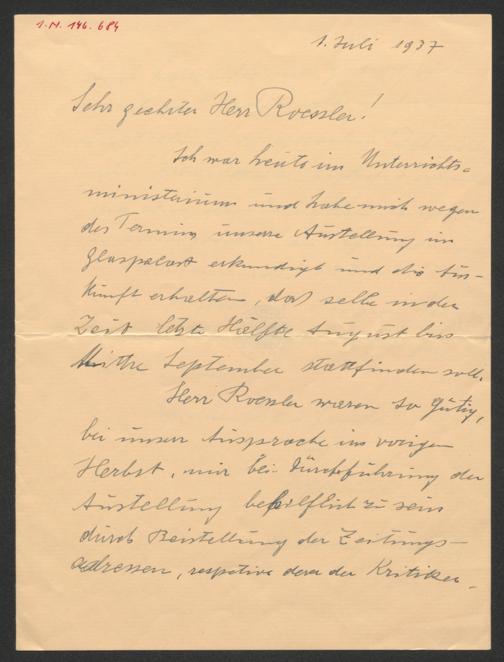 I.N. 146.684
1. Juli 1937
Sehr geehrter Herr Roessler!
Ich war heute im Unterrichts=
ministerium und habe mich wegen
des Termins unserer Austellung im
Glaspalast erkundigt und die Aus-
kunft erhalten, daß selbe in der
Zeit letzte Hälfte August bis
Mitte September stattfinden soll.
Herr Roessler waren so gütig,
bei unserer Aussprache im vorigen
Herbst, mir bei Durchführung der
Austellung behilflich zu sein
durch Beistellung der Zeitungs-
adressen, respektive derer der Kritiker.